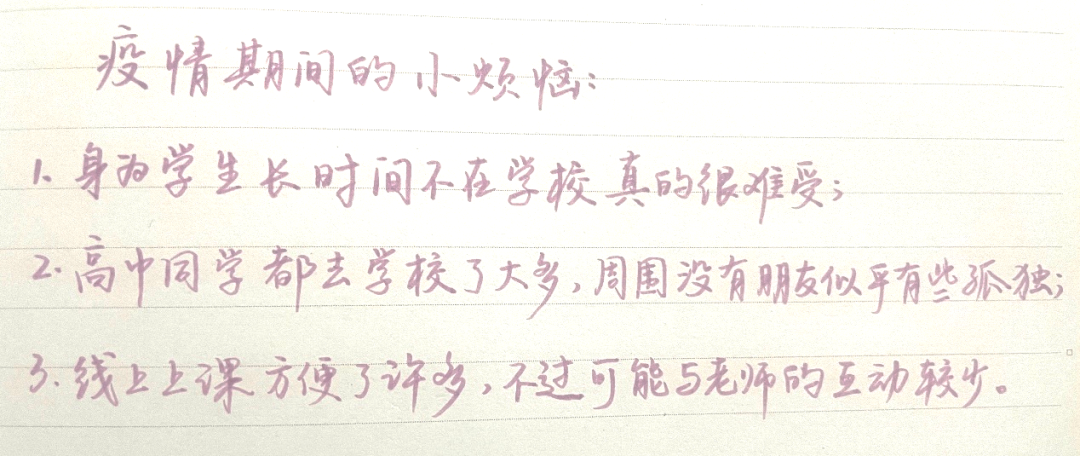 疫情期间的小烦恼:
1. 身为学生长时间不在学校真的很难受;
2. 高中同学都去学校了大多,周围没有朋友似乎有些孤独;
3. 线上上课方便了许多,不过可能与老师的互动较少。